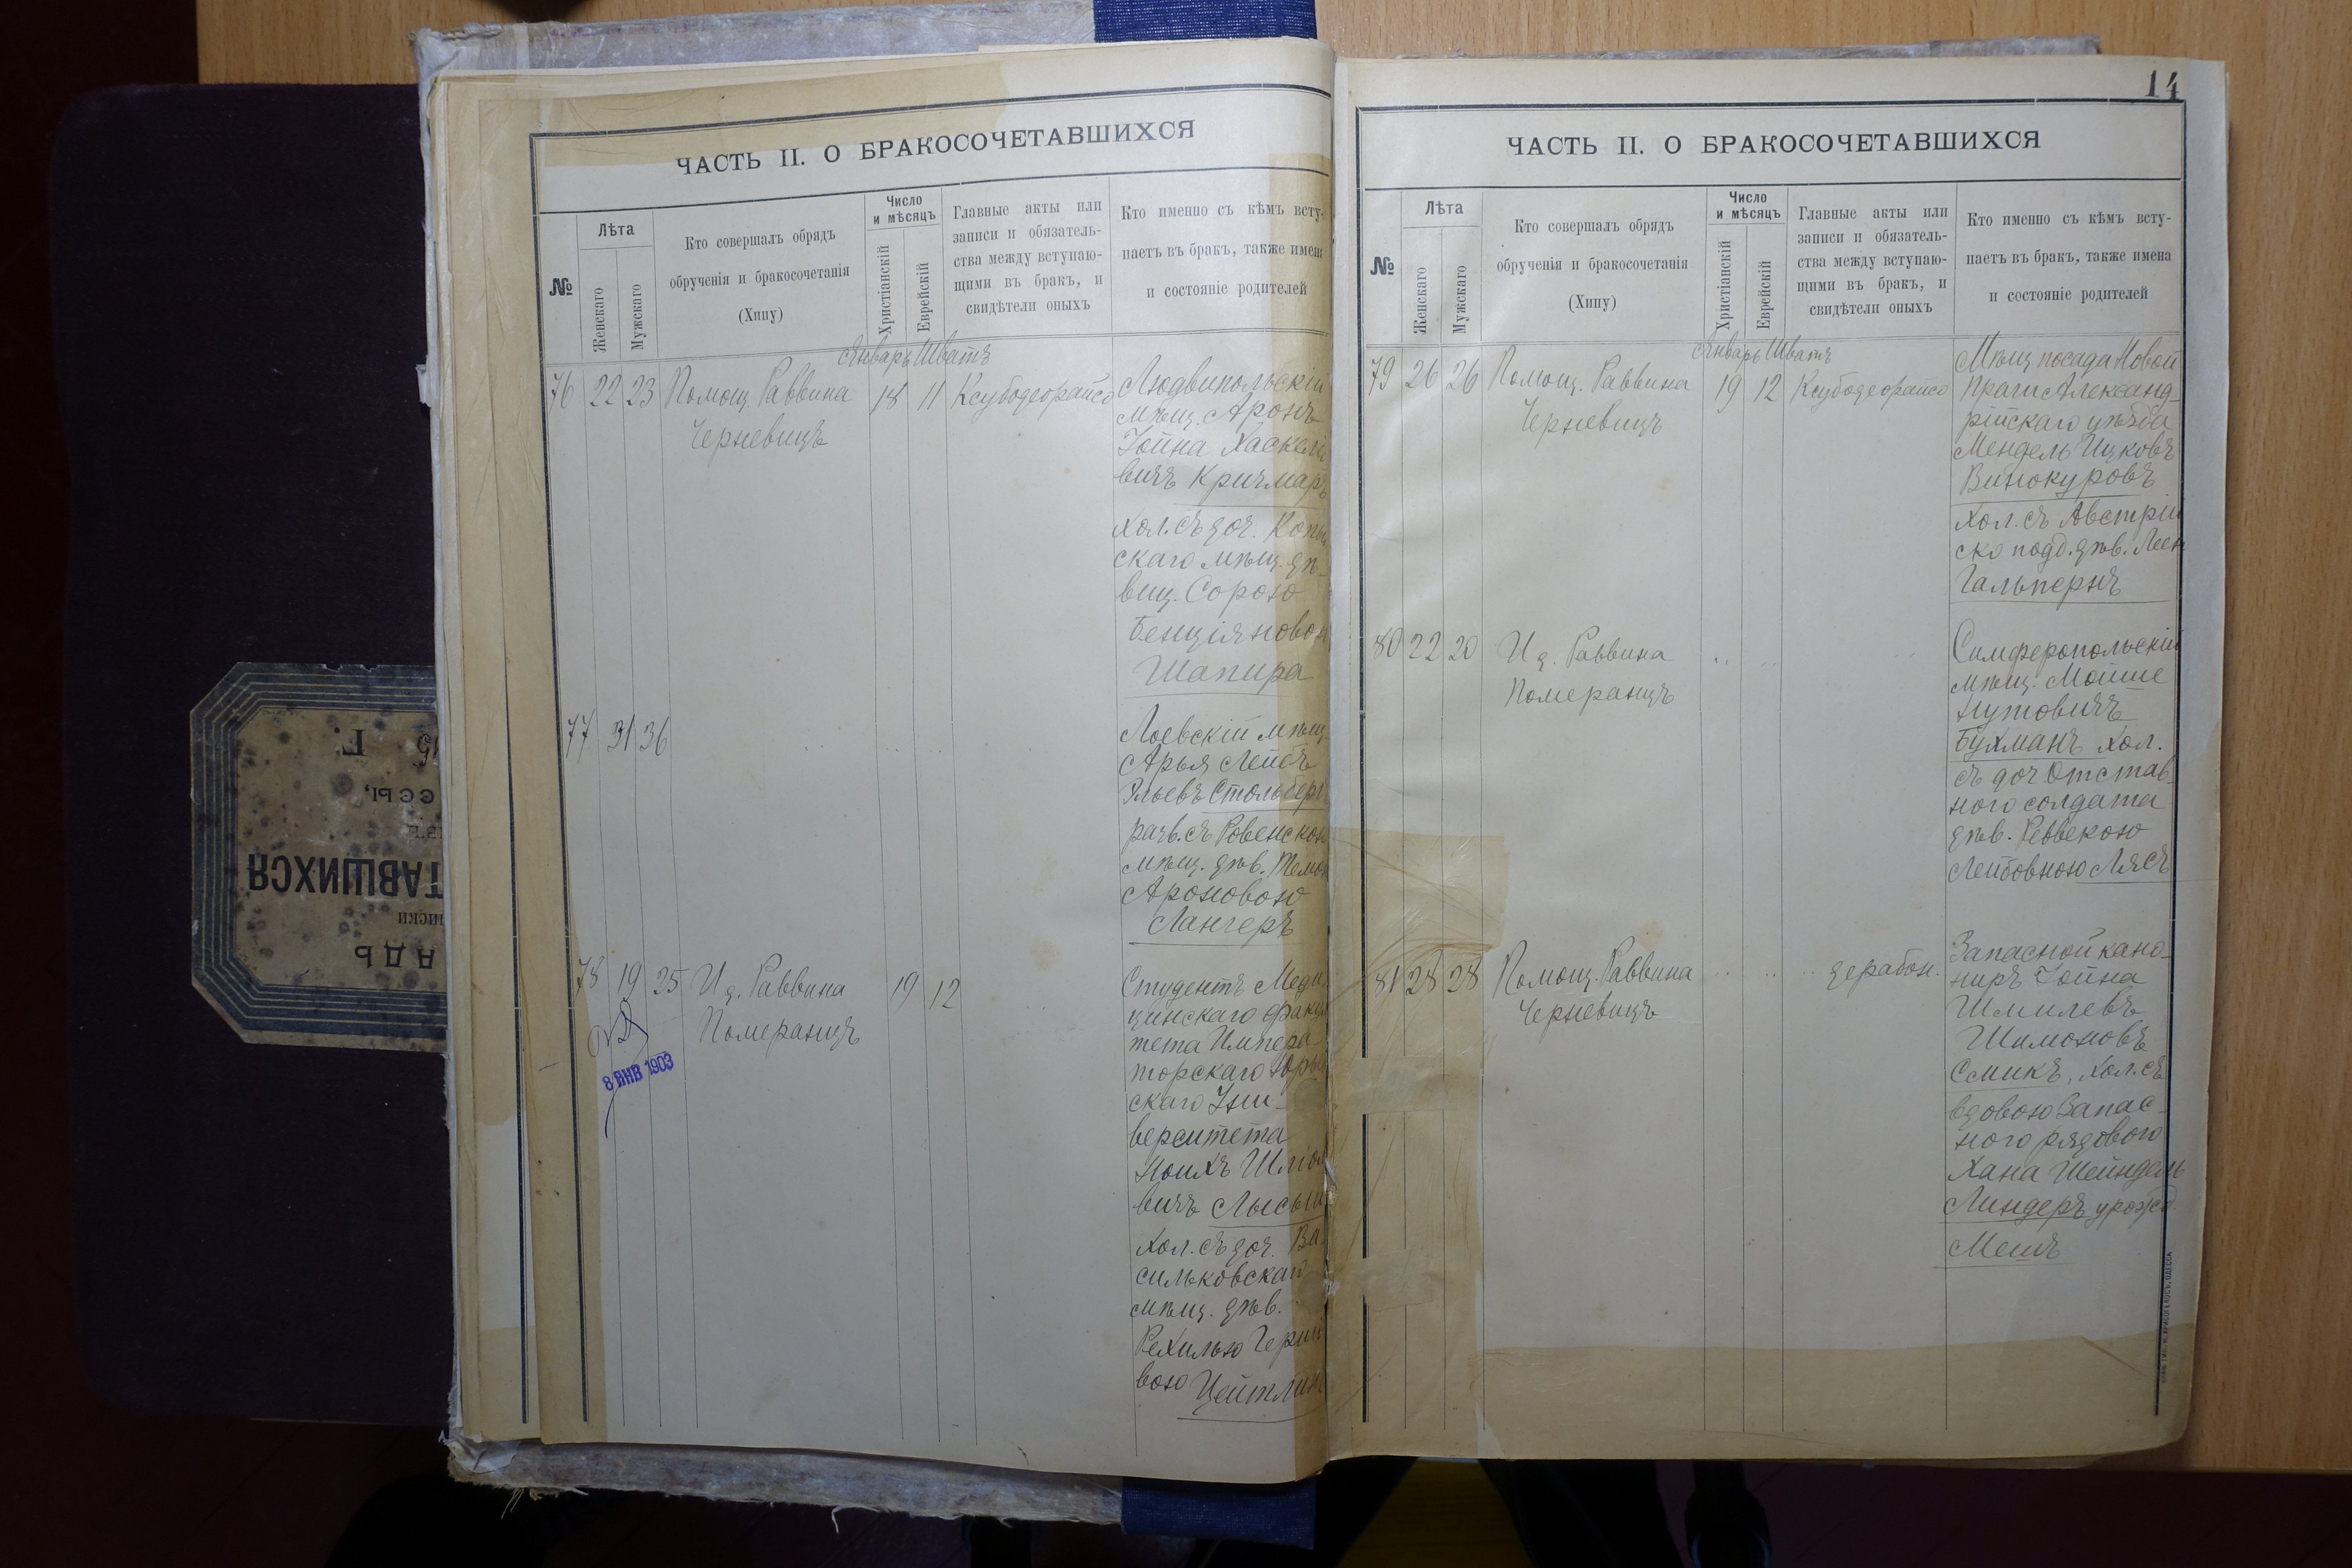 14
ЧАСТЬ II. О БРАКОСОЧЕТАВШИХСЯ
№
Лѣта
Женскаго
Мужскаго
Кто совершалъ обрядъ
обрученія и бракосочетанія
(Хипу)
Число
и мѣсяцъ
Христіанскій
Еврейскій
Главные акты или
записи и обязатель-
ства между вступаю-
щими въ бракъ, и
свидѣтели оныхъ
Кто именно съ кѣмъ всту-
паетъ въ бракъ, также имена
и состояніе родителей
Январь Шватъ
76 22 23 Помощ. Раввина 18 11 Ксубодеорайсо
Черневицъ
Людвипольскій
мѣщ. Аронъ
Іойна Хаскеле
вичъ Кричмаръ
хол. съ доч.
скаго мѣщ. дѣ-
виц. Сорою
Бенціяново
Шапира
77 31 36
Лоевскій мѣщ.
Арья Лейбъ
Эльевъ Стольберг
разв. съ Ровенскою
мѣщ. дѣв. Темою
Ароновою
Лангеръ
78 19 25 И д. Раввина 19 12
Померанцъ
8 ЯНВ 1903
Студентъ Меди
цинскаго факул
тета Импера-
торскаго Юрьев
скаго Уни-
верситета
Ноихъ Шліом
вичъ
хол. съ доч. Ва
сильковскаго
мѣщ. дѣв.
Рехилью
вою Цейтлинъ
ЧАСТЬ II. О БРАКОСОЧЕТАВШИХСЯ
№
Лѣта
Женскаго
Мужскаго
Кто совершалъ обрядъ
обрученія и бракосочетанія
(Хипу)
Число
и мѣсяцъ
Христіанскій
Еврейскій
Главные акты или
записи и обязатель-
ства между вступаю-
щими въ бракъ, и
свидѣтели оныхъ
Кто именно съ кѣмъ всту-
паетъ въ бракъ, также имена
и состояніе родителей
Январь Шватъ
79 26 26 Помощ. Раввина 19 12 Ксубодеорайсо
Черневицъ
Мѣщ. посада Новой
Праги Александ-
рійскаго уѣзда
Мендель Ицковъ
Винокуровъ
хол. съ Австрій
ско подд. дѣв. Леею
Гальпернъ
80 22 20 И д. Раввина
Померанцъ
Симферопольскій
мѣщ. Мойше
Нутовичъ
Бухманъ хол.
съ доч Отстав-
ного солдата
дѣв. Реввекою
Лейбовною Лясъ
81 28 28 Помощ. Раввина дерабон.
Черневицъ
Запасной кано-
ниръ Іойна
Шмилевъ
Шимоновъ
Смикъ, хол. съ
вдовою Запас-
ного рядового
Хана Шейндель
Линдеръ урожд.
ТАВШИХСЯ
АДЬ